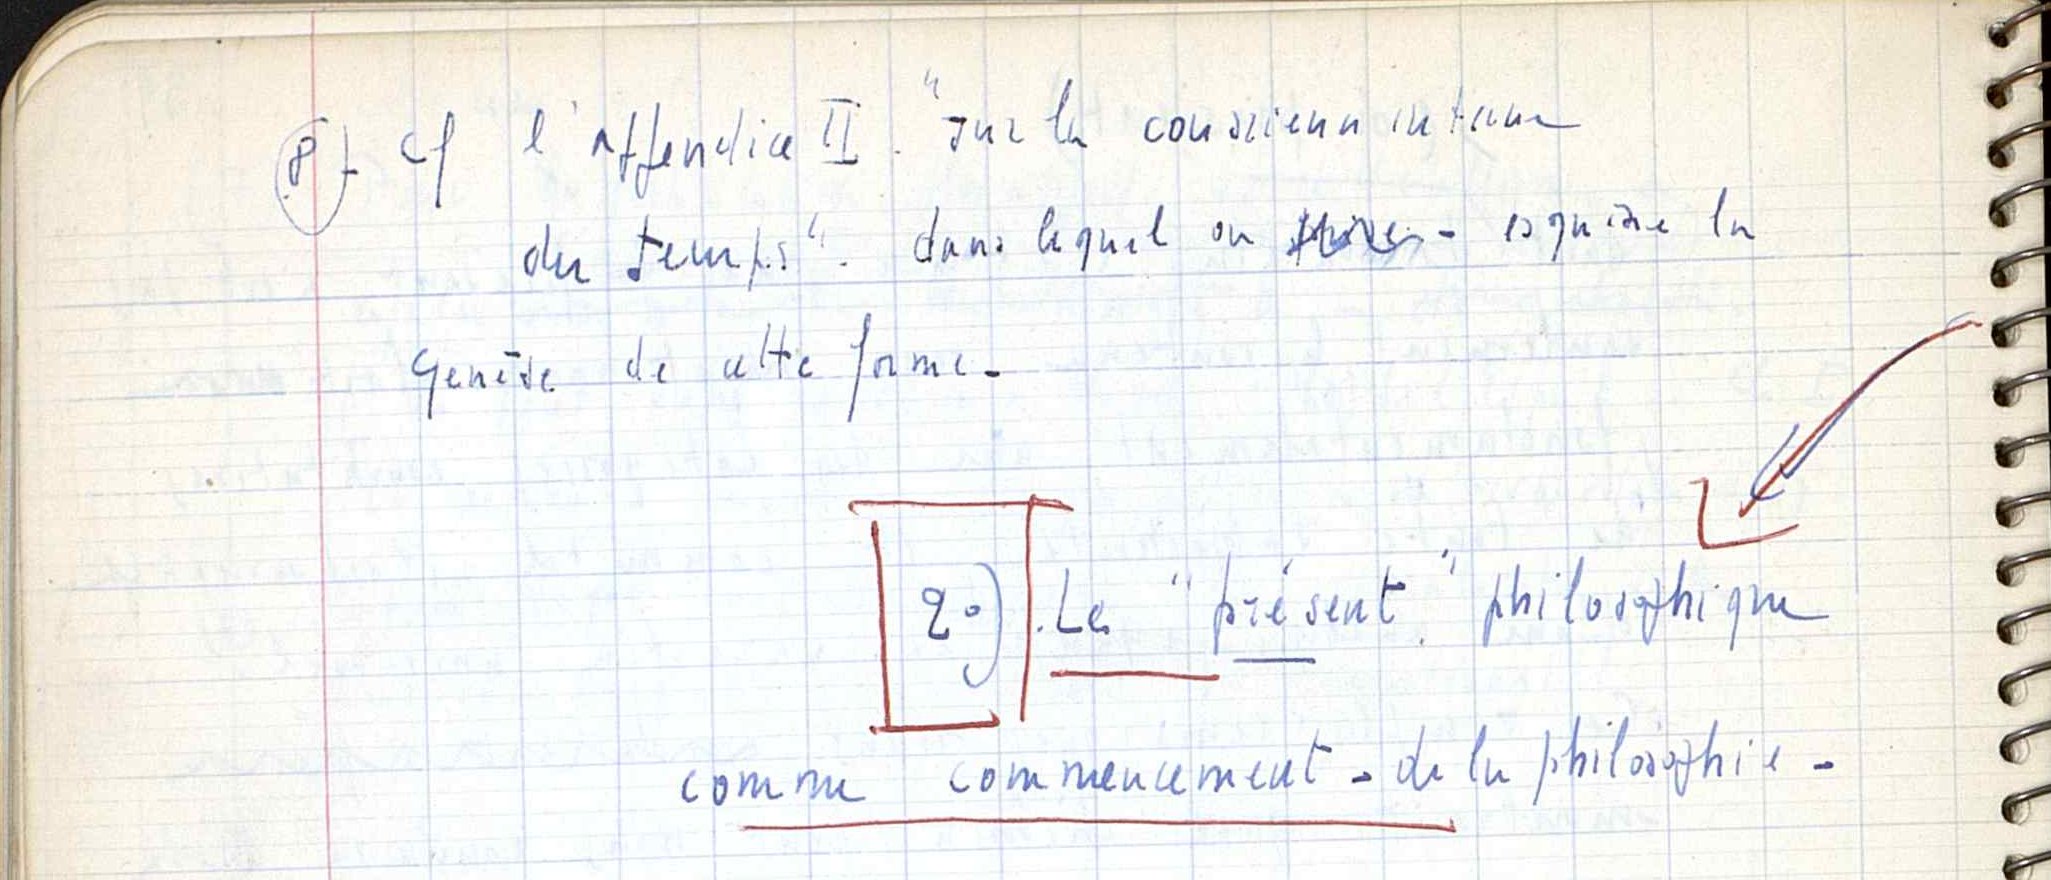 8)- cf l'appendice II. "sur la conscience intime
du temps". dans lequel on - esquisse la
genèse de cette forme-
2°). Le "présent" philosophique
comme commencement - de la philosophie -